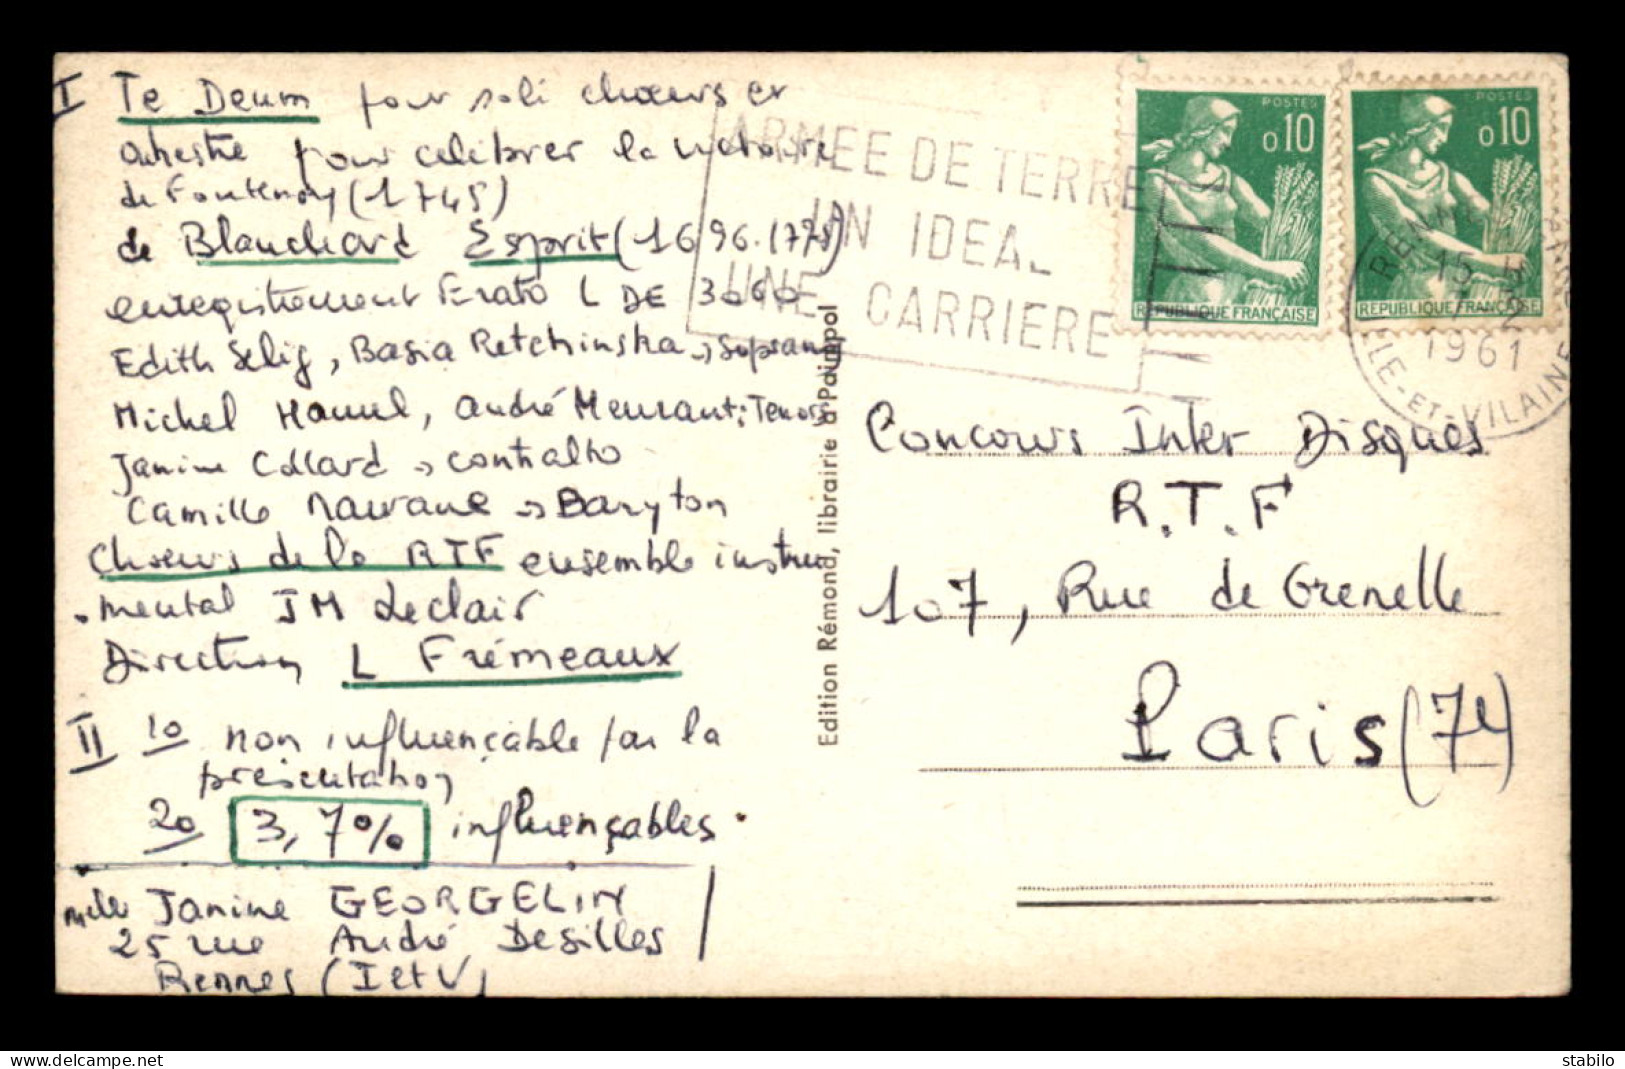 I Te Deum pour soli chœurs et
orchestre pour célébrer la victoire
de Fontenoy (1745)
de Blanchard Esprit (1696.1778)
enregistrement Erato L DE 3060
Edith Selig, Basia Retchinska → sopranos
Michel Hamel, André Meurant: Tenors
Janine Collard → contralto
Camille Maurane → Baryton
Chœurs de la RTF ensemble instru
mental JM Leclair
Direction L Frémeaux
II 1o non influençable par la
présentation
2o 3,7% influençables
Mlle Janine GEORGELIN
25 rue André Desilles
Rennes (I et V)
Edition Rémond, librairie à Paimpol
ARMEE DE TERRE
UN IDEAL
UNE CARRIERE
POSTES
0,10
REPUBLIQUE FRANÇAISE
POSTES
0,10
REPUBLIQUE FRANÇAISE
RENNES
15 H
1961
ILLE-ET-VILAINE
Concours Inter Disques
R.T.F
107, Rue de Grenelle
Paris (74)
stabilo